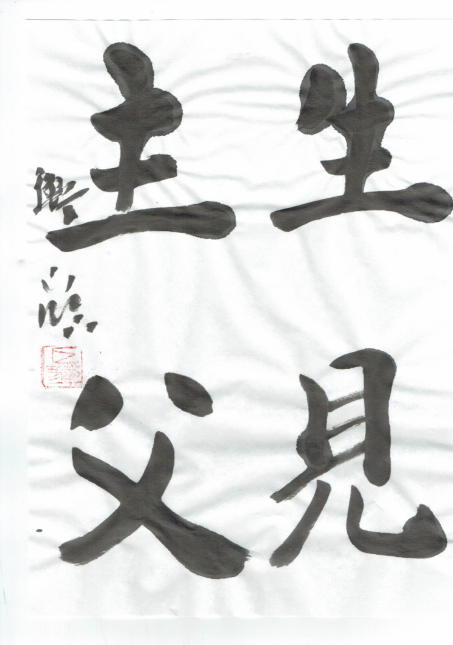 生見
主父